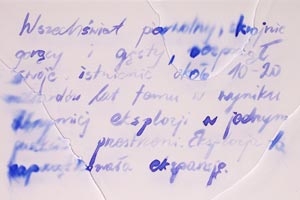 Wszechświat powolny, skrajnie
gorący i gęsty, rozpoczął
swoje istnienie około 10-20
miliardów lat temu w wyniku
eksplozji w jednym
punkcie przestrzeni. Eksplozja ta
zapoczątkowała ekspansję.